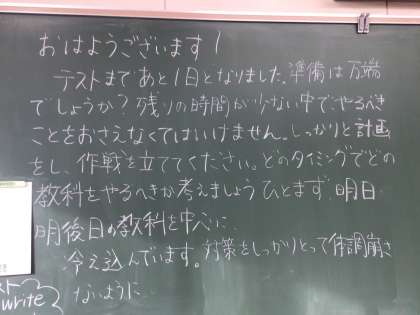 おはようございます!
テストまであと1日となりました。準備は万端
でしょうか?残りの時間が少ない中でやるべき
ことをおさえなくてはいけません。しっかりと計画
をし、作戦を立ててください。どのタイミングでどの
教科をやるべきか考えましょう ひとまず、明日
明後日の教科を中心に、
冷え込んでいます。対策をしっかりとって体調崩さ
ないように
スト
write